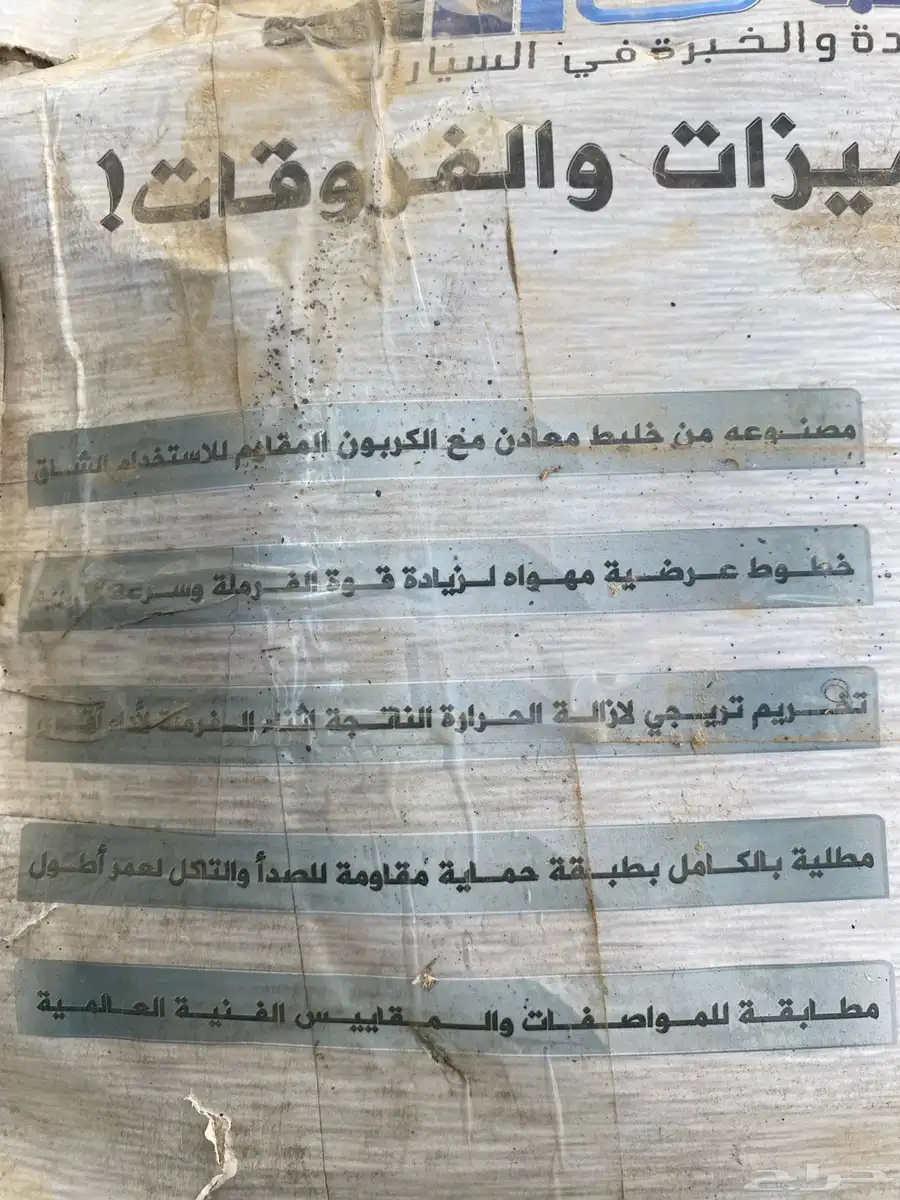 دة والخبرة في السيار
ميزات والفروقات!
مصنوعه من خليط معادن مع الكربون المقاوم للاستخدام الشاق
خطوط عرضية مهواه لزيادة قوة الفرملة وسرعة
تخريم تريجي لازالة الحرارة الناتجة اثناء الفرملة لأداء أقوى
مطلية بالكامل بطبقة حماية مقاومة للصدأ والتاكل لعمر أطول
مطابقة للمواصفات والمقاييس الفنية العالمية
حراج